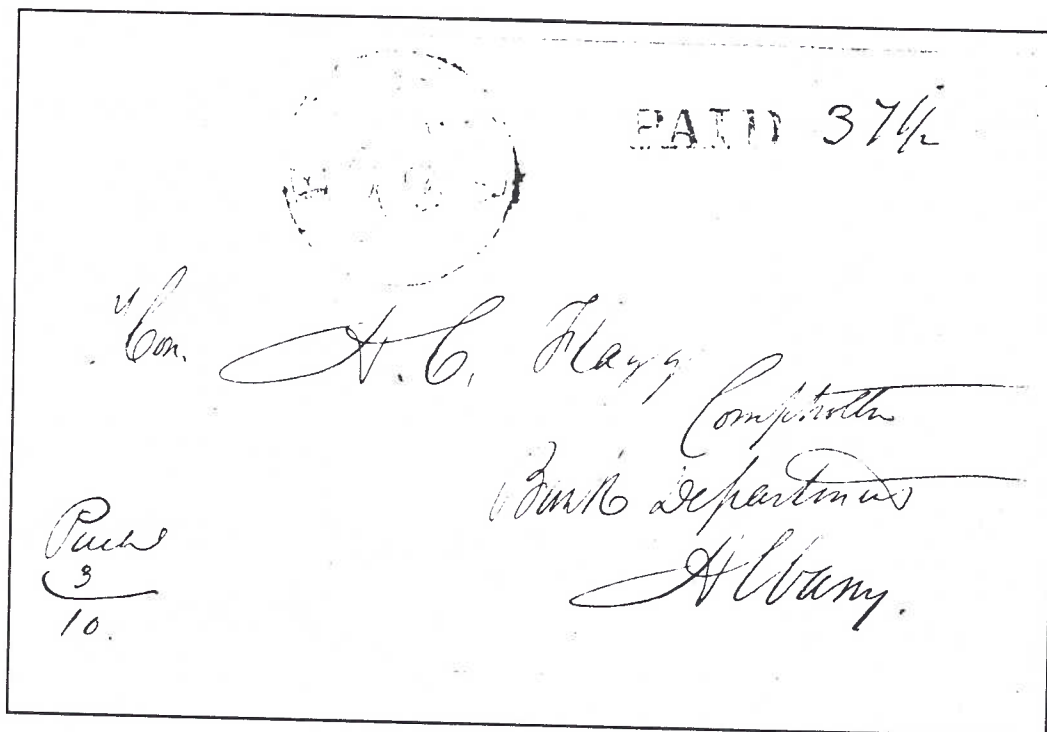 PAID 37 1/2
Hon. A. C. Flagg
Comptroller
Bank Department
Albany.
3
10.